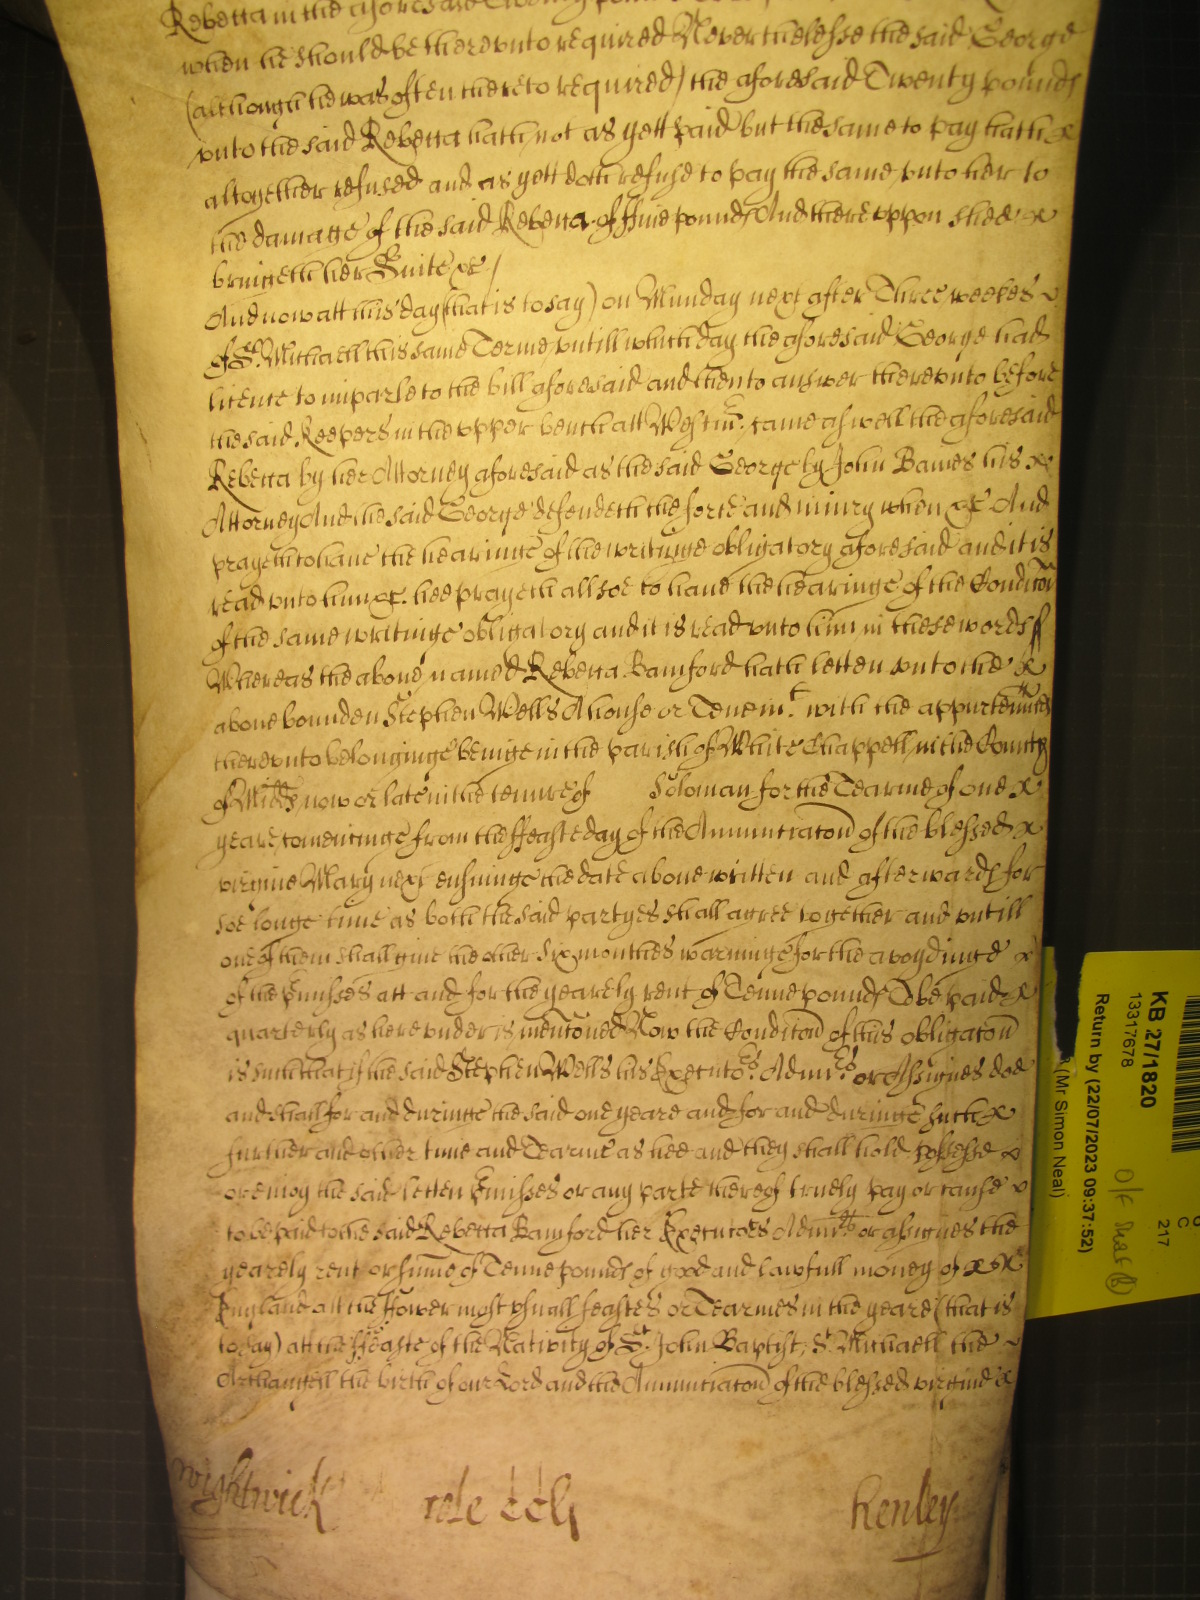 Rebecca in the aforesaid
when he should be therevnto required Neverthelesse the said George
(although he was often thereto required) the aforesaid Twenty pounds
vnto the said Rebecca hath not as yett paid but the same to pay hath
altogether refused and as yett doth refuse to pay the same vnto her to
the damage of the said Rebecca of ffiue pounds And therevppon shee
bringeth her Suite &c /
And now att this day (that is to say) on Munday next after Three weekes
of St. Michaell this same Terme vntill which day the aforesaid George had
licence to imparle to the bill aforesaid and then to answer therevnto before
the said Keepers in the vpper bench att Westmr. came as well the aforesaid
Rebecca by her Attorney aforesaid as the said George by John Baines his
Attorney And the said George defendeth the force and iniury when &c And
prayeth to haue the hearinge of the writinge obligatory aforesaid and it is
read vnto him &c. hee prayeth allsoe to haue the hearinge of the Condicon
of the same writinge obligatory and it is read vnto him in these words ss
Whereas the aboue named Rebecca Bamford hath letten vnto the
aboue bounden Stephen Wells A house or Tenemt. with the appurtennces
therevnto belonginge beinge in the parish of White Chappell in the County
of Midds, now or late in the tenure of Soloman for the Tearme of one
yeare, comencinge from the ffeaste day of the Annunciacon of the blessed
virgine Mary next ensuinge the date aboue written and afterwards for
soe longe time as both the said partyes shall agree together and vntill
one of them shall giue the other Six monthes warninge for the avoydinge
of the pmisses att and for the yearely rent of Tenne pounds To be paid
quarterly as herevnder is mencioned Now the Condicon of this obligacon
is such that if the said Stephen Wells his Executors. Admrs. or Assignes doe
and shall for and duringe the said one yeare and for and duringe such
further and other time and Tearme as hee and they shall hold possesse
or enioy the said letten pmisses or any parte thereof truely pay or cause
to be paid to the said Rebecca Bamford her Executors Admrs or assignes the
yearely rent or summe of Tenne pounds of good and lawfull money of
England att the ffower most vsuall feastes or Tearmes in the yeare (that is
to say) att the ffeaste of the Nativity of St. John Baptist, St. Michaell the
Archangell the birth of our Lord and the Annunciacon of the blessed virgine
Wightwick
Henley
KB 27/1820
13317678
Return by (22/07/2023 09:37:52)
(Mr Simon Neal)
217
C